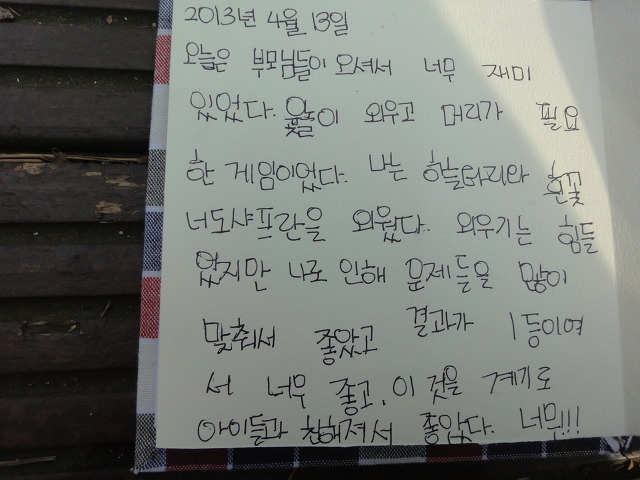 2013년 4월 13일
오늘은 부모님들이 오셔서 너무 재미
있었다. 윷놀이 외우고 머리가 필요
한 게임이었다. 나는 하늘타리와 흰꽃
너도샤프란을 외웠다. 외우기는 힘들
었지만 나로 인해 문제들을 많이
맞춰서 좋았고 결과가 1등이여
서 너무 좋고, 이 것을 계기로
아이들과 친해져서 좋았다. 너무!!!